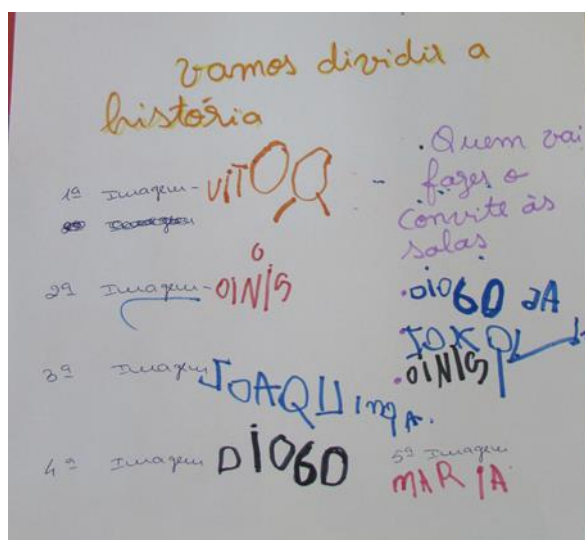 vamos dividir a
história
1ª Imagem - VITOR
2ª Imagem - DINIS
3ª Imagem JOAQUINA.
4ª Imagem DIOGO
5ª Imagem
MARIA
. Quem vai
fazer o
convite às
salas
. DIOGO
. DINIS